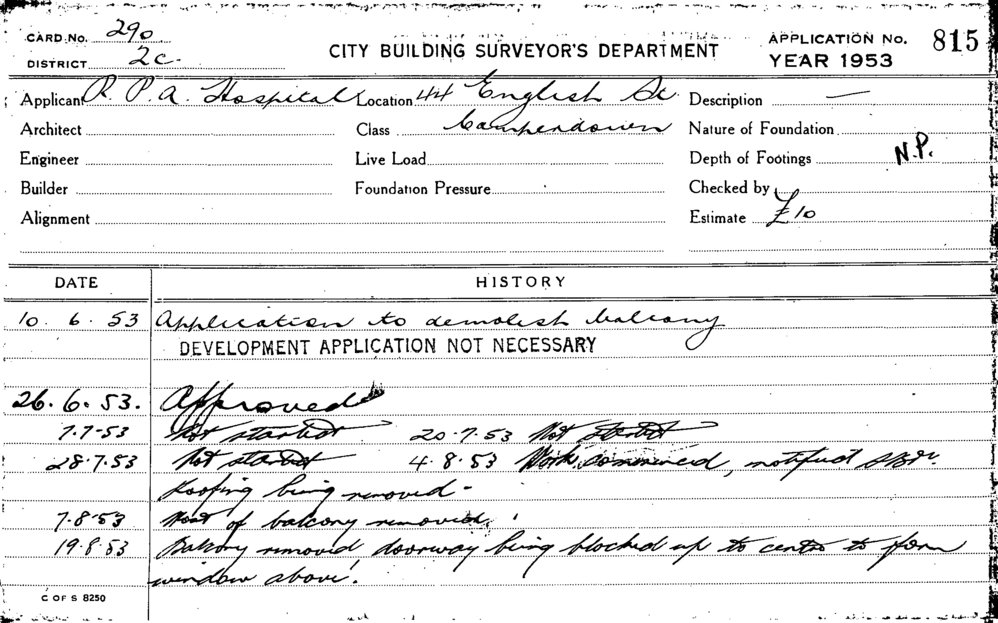 CARD No. 290
DISTRICT 2c.
CITY BUILDING SURVEYOR'S DEPARTMENT
APPLICATION No. 815
YEAR 1953
Applicant R. P. A. Hospital Location 44 English St Description —
Architect Class Camperdown Nature of Foundation
Engineer Live Load Depth of Footings N.P.
Builder Foundation Pressure Checked by
Alignment Estimate £10
DATE HISTORY
10. 6. 53 Application to demolish balcony
DEVELOPMENT APPLICATION NOT NECESSARY
26. 6. 53. Approved
7-7-53 Not started 20.7.53 Not Started
28.7.53 Not started 4.8.53 Work commenced, notified
Roofing being removed -
7.8.53 Most of balcony removed.
19.8.53 Balcony removed doorway being blocked up to centre to form
window above.
C OF S 8250